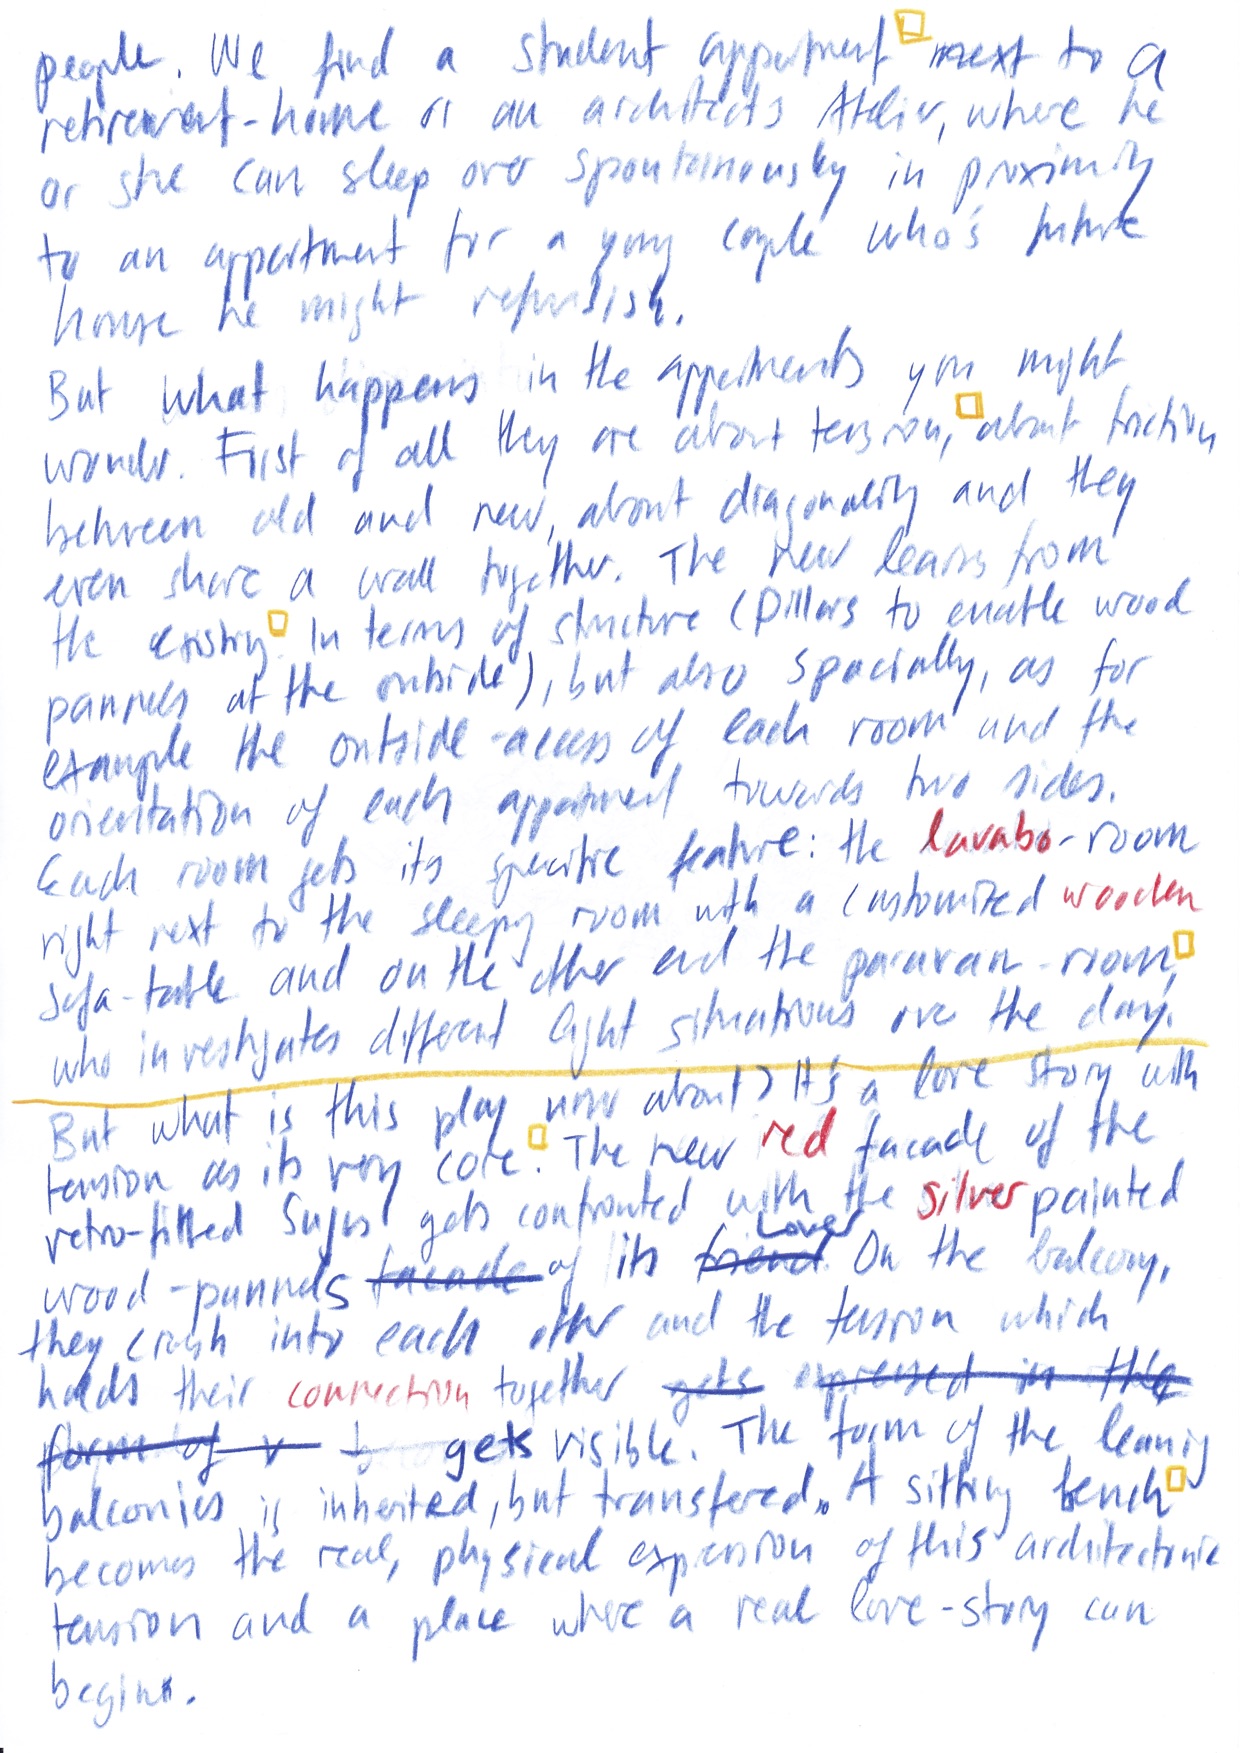 people. We find a student appartment next to a
retirement-home or an architects Atelier, where he
or she can sleep over spontaniously in proximity
to an appartment for a yong couple who's future
house he might refurbish.
But what happens in the appartments you might
wonder. First of all they are about tension, about friction
between old and new, about diagonality and they
even share a wall together. The new learns from
the existing. In terms of structure (pillars to enable wood
pannels at the outside), but also spacially, as for
example the outside-access of each room and the
orientation of each appartment towards two sides.
Each room gets its specific feature: the lavabo-room
right next to the sleeping room with a customized wooden
sofa-table and on the other end the paravan-room,
who investigates different light situations over the day.
But what is this play now about? It's a love story with
tension as its very core. The new red facade of the
retro-fitted Sujus gets confronted with the silver painted
wood-pannels facade of its friend Lover. On the balcony,
they crash into each other and the tension which
holds their connection together gets expressed in the
form of v gets visible. The form of the leaning
balconies is inherited, but transfered. A sitting bench
becomes the real, physical expression of this architectonic
tension and a place where a real love-story can
begin.